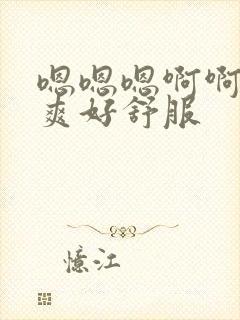 嗯嗯嗯啊啊
爽好舒服
憶江